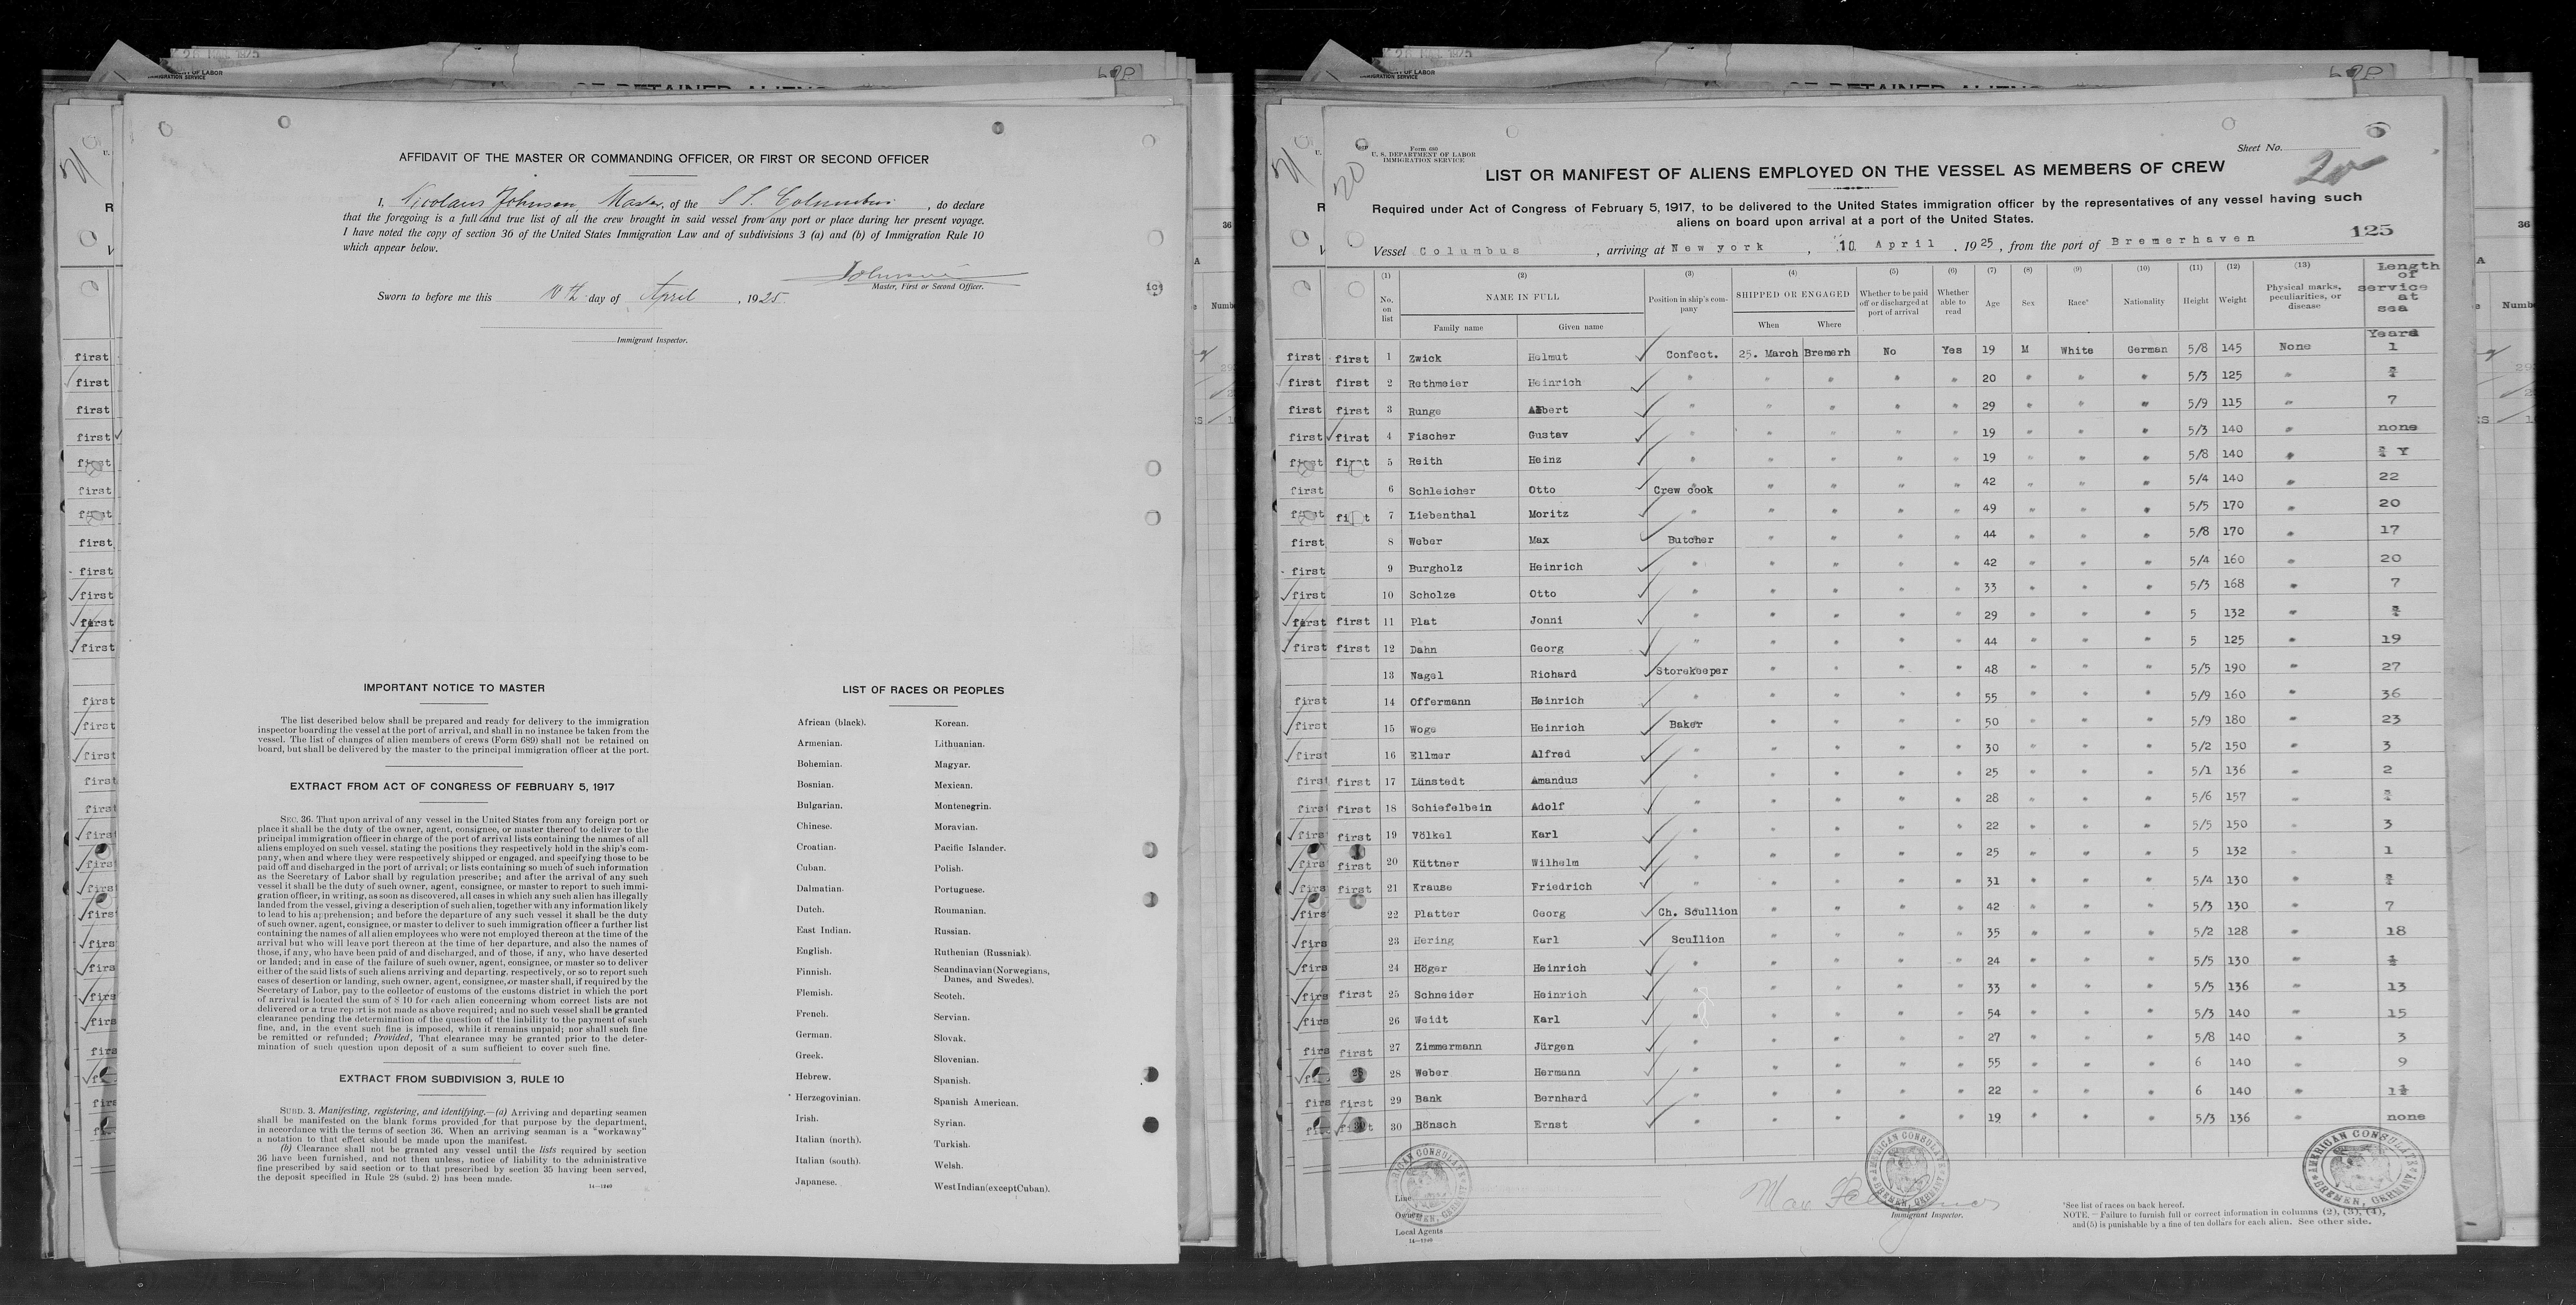 AFFIDAVIT OF THE MASTER OR COMMANDING OFFICER, OR FIRST OR SECOND OFFICER
I, Nicolaus Johnsen, Master, of the S.S. Columbus, do declare
that the foregoing is a full and true list of all the crew brought in said vessel from any port or place during her present voyage.
I have noted the copy of section 36 of the United States Immigration Law and of subdivisions 3 (a) and (b) of Immigration Rule 10
which appear below.
Johnsen
Master, First or Second Officer.
Sworn to before me this 10th day of April, 1925.
Immigrant Inspector.
IMPORTANT NOTICE TO MASTER
The list described below shall be prepared and ready for delivery to the immigration
inspector boarding the vessel at the port of arrival, and shall in no instance be taken from the
vessel. The list of changes of alien members of crews (Form 689) shall not be retained on
board, but shall be delivered by the master to the principal immigration officer at the port.
EXTRACT FROM ACT OF CONGRESS OF FEBRUARY 5, 1917
SEC. 36. That upon arrival of any vessel in the United States from any foreign port or
place it shall be the duty of the owner, agent, consignee, or master thereof to deliver to the
principal immigration officer in charge of the port of arrival lists containing the names of all
aliens employed on such vessel, stating the positions they respectively hold in the ship's com-
pany, when and where they were respectively shipped or engaged, and specifying those to be
paid off and discharged in the port of arrival; or lists containing so much of such information
as the Secretary of Labor shall by regulation prescribe; and after the arrival of any such
vessel it shall be the duty of such owner, agent, consignee, or master to report to such immi-
gration officer, in writing, as soon as discovered, all cases in which any such alien has illegally
landed from the vessel, giving a description of such alien, together with any information likely
to lead to his apprehension; and before the departure of any such vessel it shall be the duty
of such owner, agent, consignee, or master to deliver to such immigration officer a further list
containing the names of all alien employees who were not employed thereon at the time of the
arrival but who will leave port thereon at the time of her departure, and also the names of
those, if any, who have been paid of and discharged, and of those, if any, who have deserted
or landed; and in case of the failure of such owner, agent, consignee, or master so to deliver
either of the said lists of such aliens arriving and departing, respectively, or so to report such
cases of desertion or landing, such owner, agent, consignee, or master shall, if required by the
Secretary of Labor, pay to the collector of customs of the customs district in which the port
of arrival is located the sum of $ 10 for each alien concerning whom correct lists are not
delivered or a true report is not made as above required; and no such vessel shall be granted
clearance pending the determination of the question of the liability to the payment of such
fine, and, in the event such fine is imposed, while it remains unpaid; nor shall such fine
be remitted or refunded; Provided, That clearance may be granted prior to the deter-
mination of such question upon deposit of a sum sufficient to cover such fine.
EXTRACT FROM SUBDIVISION 3, RULE 10
SUBD. 3. Manifesting, registering, and identifying.—(a) Arriving and departing seamen
shall be manifested on the blank forms provided for that purpose by the department,
in accordance with the terms of section 36. When an arriving seaman is a "workaway"
a notation to that effect should be made upon the manifest.
(b) Clearance shall not be granted any vessel until the lists required by section
36 have been furnished, and not then unless, notice of liability to the administrative
fine prescribed by said section or to that prescribed by section 35 having been served,
the deposit specified in Rule 28 (subd. 2) has been made.
14—1240
LIST OF RACES OR PEOPLES
African (black).
Armenian.
Bohemian.
Bosnian.
Bulgarian.
Chinese.
Croatian.
Cuban.
Dalmatian.
Dutch.
East Indian.
English.
Finnish.
Flemish.
French.
German.
Greek.
Hebrew.
Herzegovinian.
Irish.
Italian (north).
Italian (south).
Japanese.
Korean.
Lithuanian.
Magyar.
Mexican.
Montenegrin.
Moravian.
Pacific Islander.
Polish.
Portuguese.
Roumanian.
Russian.
Ruthenian (Russniak).
Scandinavian (Norwegians,
Danes, and Swedes).
Scotch.
Servian.
Slovak.
Slovenian.
Spanish.
Spanish American.
Syrian.
Turkish.
Welsh.
West Indian (except Cuban).
Form 680
U. S. DEPARTMENT OF LABOR
IMMIGRATION SERVICE
Sheet No. 20
LIST OR MANIFEST OF ALIENS EMPLOYED ON THE VESSEL AS MEMBERS OF CREW
Required under Act of Congress of February 5, 1917, to be delivered to the United States immigration officer by the representatives of any vessel having such
aliens on board upon arrival at a port of the United States.
125
Vessel Columbus, arriving at New york, 10 April, 1925, from the port of Bremerhaven
(1) (2) (3) (4) (5) (6) (7) (8) (9) (10) (11) (12) (13)
No. on list NAME IN FULL Family name Given name Position in ship's company SHIPPED OR ENGAGED When Where Whether to be paid off or discharged at port of arrival Whether able to read Age Sex Race* Nationality Height Weight Physical marks, peculiarities, or disease Length of service at sea
Years
first 1 Zwick Helmut Confect. 25. March Bremerh No Yes 19 M White German 5/8 145 None 1
first 2 Rethmeier Heinrich " " " " " 20 " " " 5/3 125 " ¾
first 3 Runge Albert " " " " " 29 " " " 5/9 115 " 7
first 4 Fischer Gustav " " " " " 19 " " " 5/3 140 " none
first 5 Reith Heinz " " " " " 19 " " " 5/8 140 " ¾ Y
6 Schleicher Otto Crew cook " " " " 42 " " " 5/4 140 " 22
first 7 Liebenthal Moritz " " " " " 49 " " " 5/5 170 " 20
8 Weber Max Butcher " " " " 44 " " " 5/8 170 " 17
9 Burgholz Heinrich " " " " " 42 " " " 5/4 160 " 20
10 Scholze Otto " " " " " 33 " " " 5/3 168 " 7
first 11 Plat Jonni " " " " " 29 " " " 5 132 " ¾
first 12 Dahn Georg " " " " " 44 " " " 5 125 " 19
13 Nagel Richard Storekeeper " " " " 48 " " " 5/5 190 " 27
14 Offermann Heinrich " " " " " 55 " " " 5/9 160 " 36
15 Woge Heinrich Baker " " " " 50 " " " 5/9 180 " 23
16 Ellmer Alfred " " " " " 30 " " " 5/2 150 " 3
first 17 Lünstedt Amandus " " " " " 25 " " " 5/1 136 " 2
first 18 Schiefelbein Adolf " " " " " 28 " " " 5/6 157 " ¾
first 19 Völkel Karl " " " " " 22 " " " 5/5 150 " 3
first 20 Küttner Wilhelm " " " " " 25 " " " 5 132 " 1
first 21 Krause Friedrich " " " " " 31 " " " 5/4 130 " ¾
22 Platter Georg Ch. Scullion " " " " 42 " " " 5/3 130 " 7
23 Hering Karl Scullion " " " " 35 " " " 5/2 128 " 18
24 Höger Heinrich " " " " " 24 " " " 5/5 130 " ½
first 25 Schneider Heinrich " " " " " 33 " " " 5/5 136 " 13
26 Weidt Karl " " " " " 54 " " " 5/3 140 " 15
first 27 Zimmermann Jürgen " " " " " 27 " " " 5/8 140 " 3
28 Weber Hermann " " " " " 55 " " " 6 140 " 9
first 29 Bank Bernhard " " " " " 22 " " " 6 140 " 1½
first 30 Bönsch Ernst " " " " " 19 " " " 5/3 136 " none
AMERICAN CONSULATE BREMEN, GERMANY
AMERICAN CONSULATE BREMEN, GERMANY
AMERICAN CONSULATE BREMEN, GERMANY
Line
Owners
Local Agents
14—1240
Immigrant Inspector.
*See list of races on back hereof.
NOTE.—Failure to furnish full or correct information in columns (2), (3), (4),
and (5) is punishable by a fine of ten dollars for each alien. See other side.